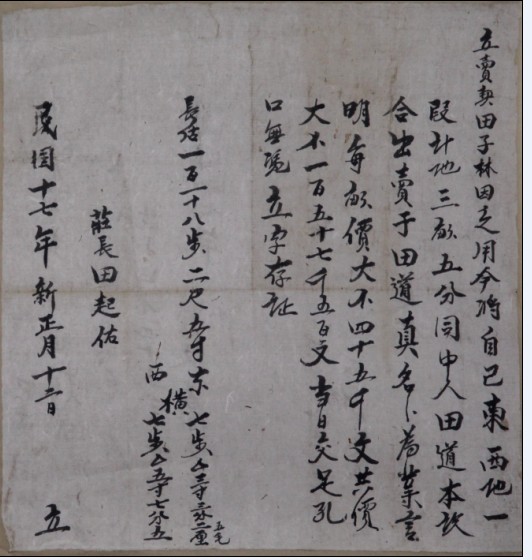 立賣契田子林因乏用今將自己東西地一
段計地三畝五分同中人田道本說
合出賣于田道真名下為業言
明每畝價大錢四十五千文共價
大錢一百五十七千五百文當日交足恐
口無憑立字存証
長活一百一十八步二尺五寸東
橫
七步
西
七步
五寸七分五
五毛
莊長田起佑
民囯十七年新正月十二日
立